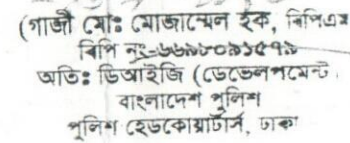 (গাজী মোঃ মোজাম্মেল হক, বিপিএম
বিপি নং-৬৬৯৮০৯১৫৭৯
অতিঃ ডিআইজি (ডেভেলপমেন্ট
বাংলাদেশ পুলিশ
পুলিশ হেডকোয়ার্টার্স, ঢাকা